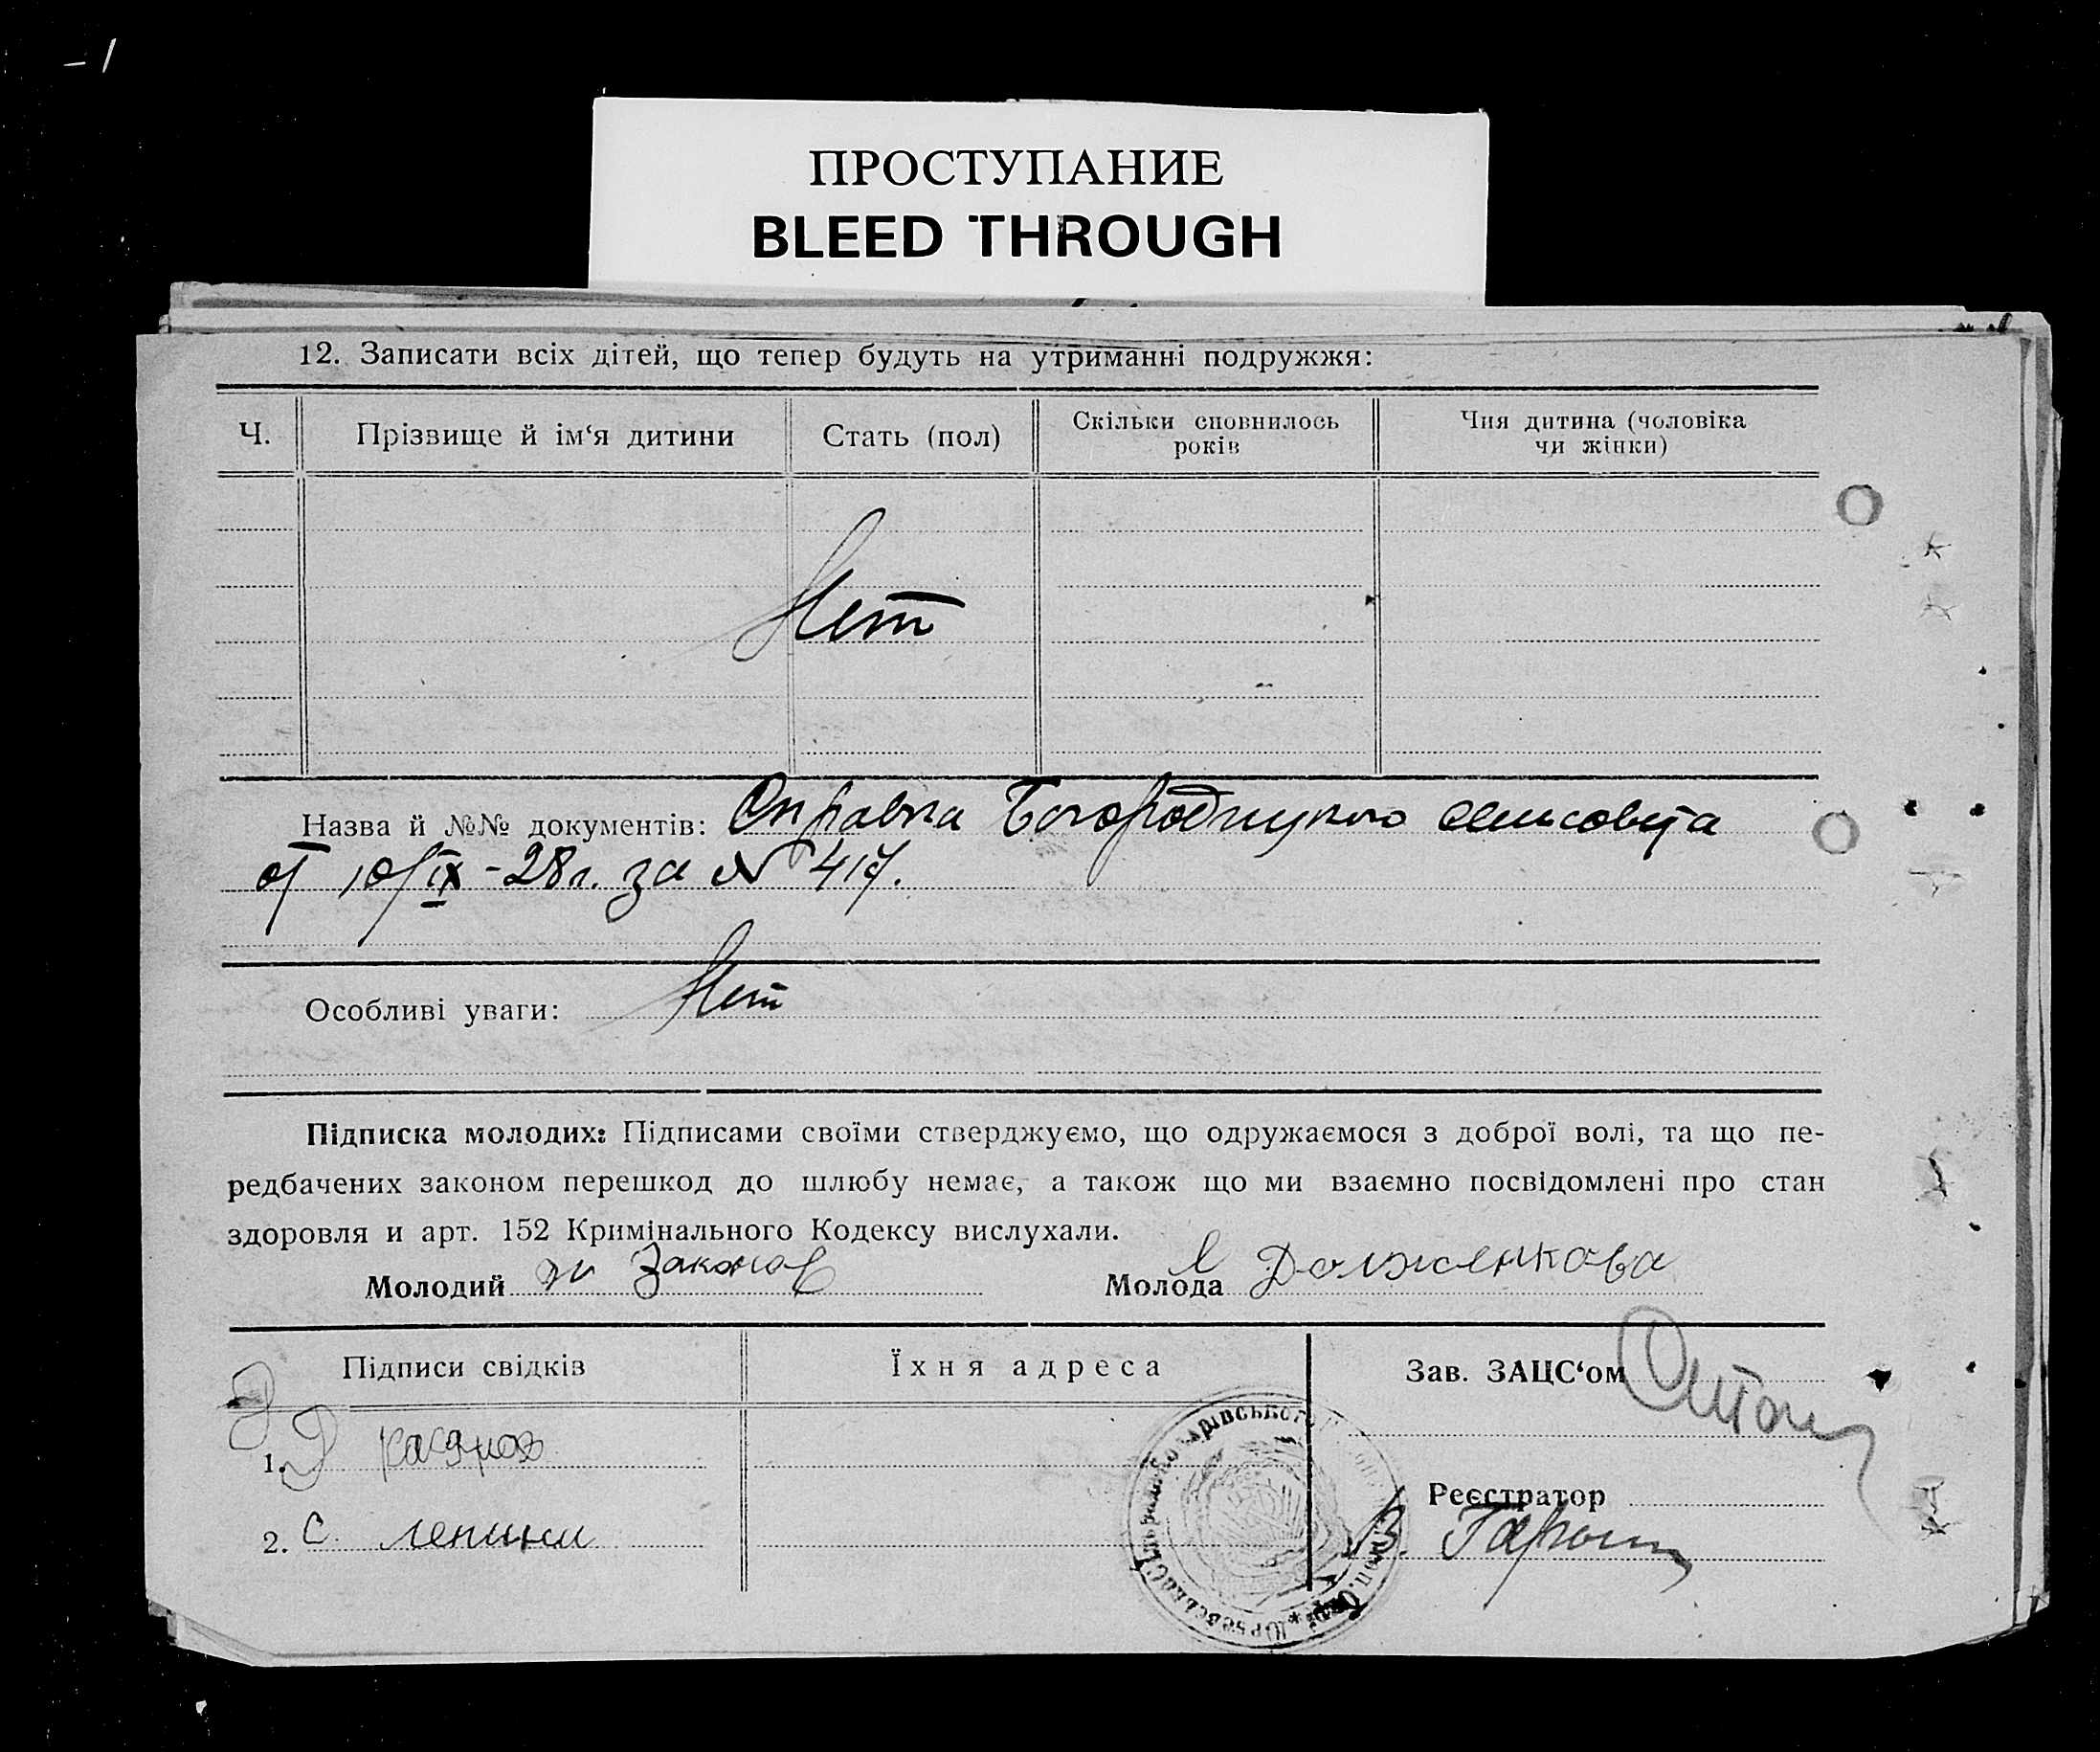 ПРОСТУПАНИЕ
BLEED THROUGH
12. Записати всіх дітей, що тепер будуть на утриманні подружжя:
Ч. Прізвище й ім‘я дитини Стать (пол) Скільки сповнилось років Чия дитина (чоловіка чи жінки)
Нет
Назва й №№ документів: Справка Богородицкого сельсовета
от 10/IX-28г. за № 417.
Особливі уваги: Нет
Підписка молодих: Підписами своїми стверджуємо, що одружаємося з доброї волі, та що пе-
редбачених законом перешкод до шлюбу немає, а також що ми взаємно посвідомлені про стан
здоровля и арт. 152 Кримінального Кодексу вислухали.
Молодий Законов Молода Долженкова
Підписи свідків Їхня адреса Зав. ЗАЦС‘ом
1.
Реєстратор
2. С.